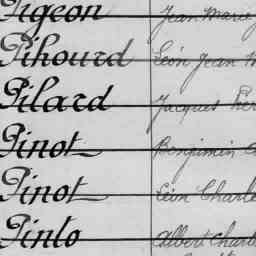 Pigeon Jean Marie
Pihourd Léon Jean
Pilard Jacques
Pinot Benjimin
Pinot Léon Charle
Pinto Albert Charl